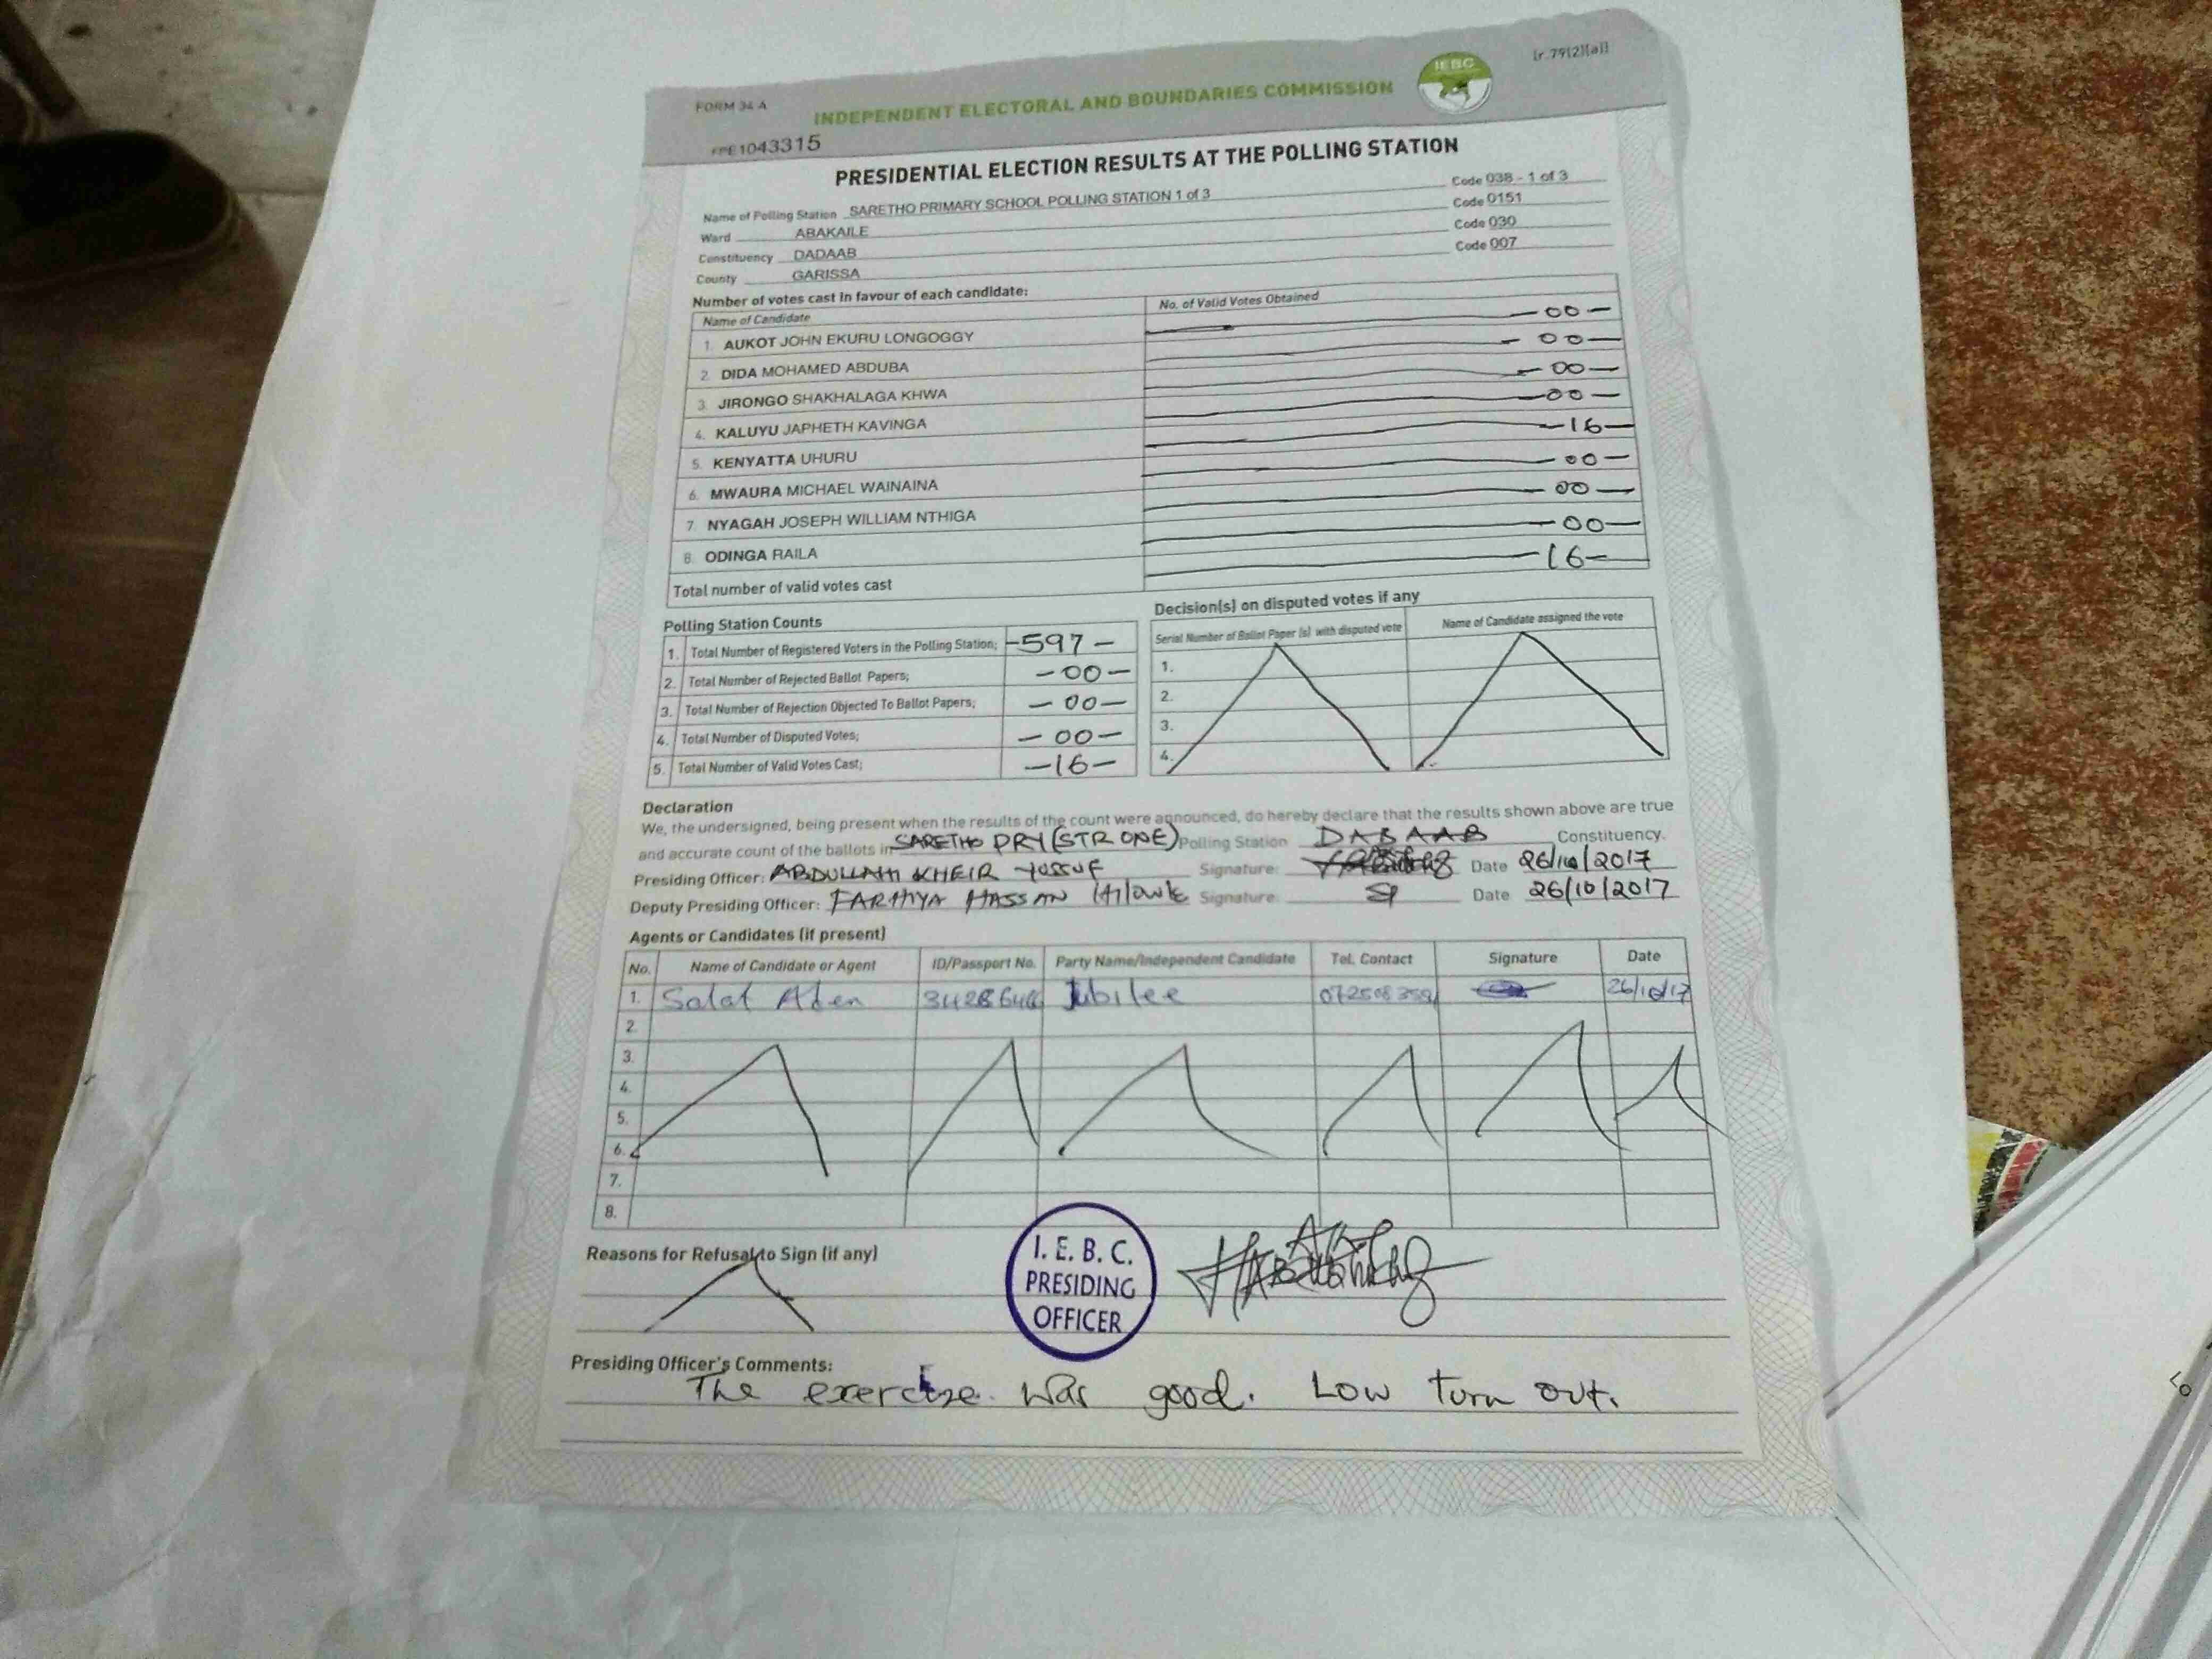 FORM 34 A
[r.79(2)(a)]
INDEPENDENT ELECTORAL AND BOUNDARIES COMMISSION
IEBC
FPE1043315
PRESIDENTIAL ELECTION RESULTS AT THE POLLING STATION
Name of Polling Station SARETHO PRIMARY SCHOOL POLLING STATION 1 of 3 Code 038 - 1 of 3
Ward ABAKAILE Code 0151
Constituency DADAAB Code 030
County GARISSA Code 007
Number of votes cast in favour of each candidate:
Name of Candidate No. of Valid Votes Obtained
1. AUKOT JOHN EKURU LONGOGGY - 00 -
2. DIDA MOHAMED ABDUBA - 00 -
3. JIRONGO SHAKHALAGA KHWA - 00 -
4. KALUYU JAPHETH KAVINGA - 00 -
5. KENYATTA UHURU - 16 -
6. MWAURA MICHAEL WAINAINA - 00 -
7. NYAGAH JOSEPH WILLIAM NTHIGA - 00 -
8. ODINGA RAILA - 00 -
Total number of valid votes cast - 16 -
Polling Station Counts
1. Total Number of Registered Voters in the Polling Station; - 597 -
2. Total Number of Rejected Ballot Papers; - 00 -
3. Total Number of Rejection Objected To Ballot Papers; - 00 -
4. Total Number of Disputed Votes; - 00 -
5. Total Number of Valid Votes Cast; - 16 -
Decision(s) on disputed votes if any
Serial Number of Ballot Paper (s) with disputed vote Name of Candidate assigned the vote
1.
2.
3.
4.
Declaration
We, the undersigned, being present when the results of the count were announced, do hereby declare that the results shown above are true
and accurate count of the ballots in SARETHO PRY (STR ONE) Polling Station DABAAB Constituency.
Presiding Officer: ABDULLAHI KHEIR YUSSUF Signature: Date 26/10/2017
Deputy Presiding Officer: FARHIYA HASSAN Signature: Date 26/10/2017
Agents or Candidates (if present)
No. Name of Candidate or Agent ID/Passport No. Party Name/Independent Candidate Tel. Contact Signature Date
1. Salat Aden Jubilee 26/10/17
2.
3.
4.
5.
6.
7.
8.
Reasons for Refusal to Sign (if any)
I. E. B. C.
PRESIDING
OFFICER
Presiding Officer's Comments:
The exercise was good. Low turn out.